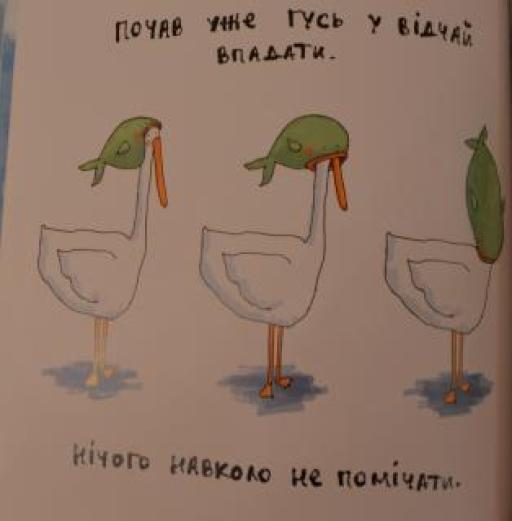 ПОЧАВ УЖЕ ГУСЬ У ВІДЧАЙ
ВПАДАТИ.
НІЧОГО НАВКОЛО НЕ ПОМІЧАТИ.